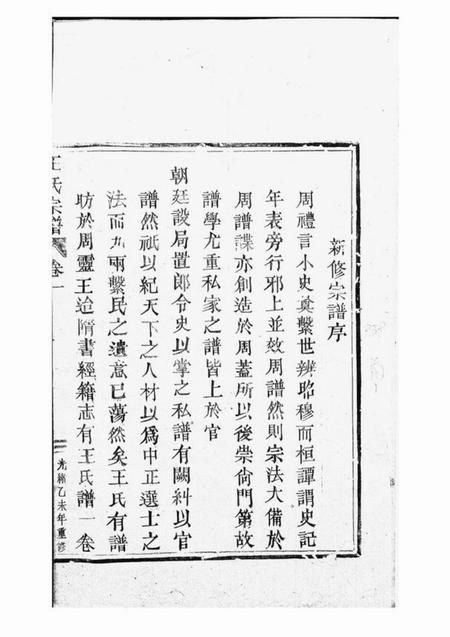 新修宗譜序
周禮言小史奠繫世辨昭穆而桓譚謂史記
年表旁行邪上並效周譜然則宗法大備於
周譜諜亦創造於周蓋所以後崇尙門第故
譜學尤重私家之譜皆上於官
朝廷設局置郎令史以掌之私譜有闕糾以官
譜然祇以紀天下之人材以爲中正選士之
法而九兩繫民之遺意已蕩然矣王氏有譜
昉於周靈王迨隋書經籍志有王氏譜一卷
王氏宗譜
卷一
光緒乙未年重修